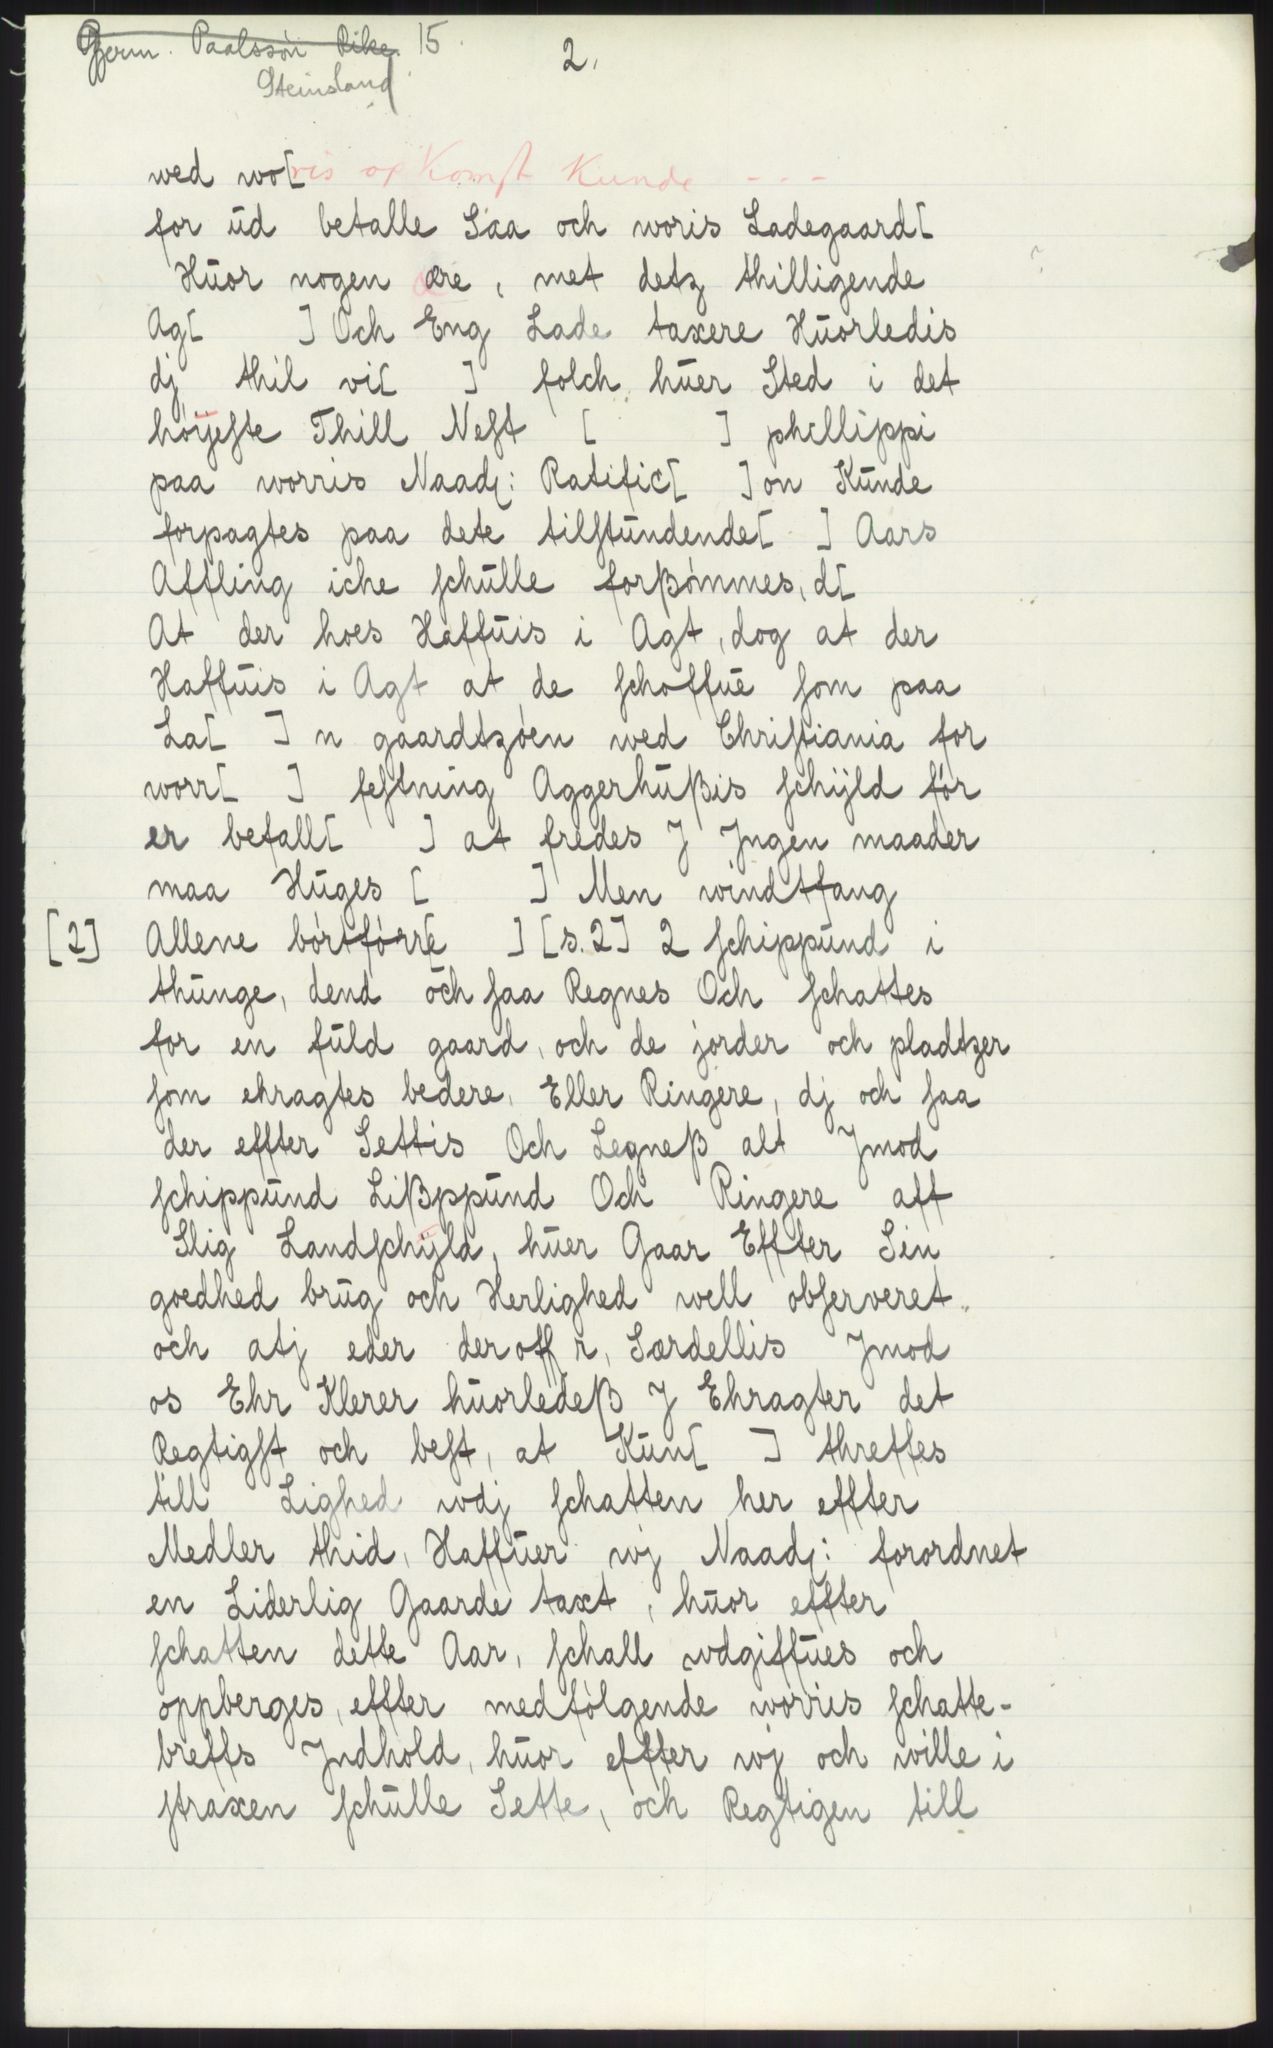 Gjerm. Paalssøn Rike. 15.
Steinsland
2.
wed wo[ris op Komst Kunde - - -
for ud betalle Saa och woris Ladegaard[
Huor nogen ere, met detz thilligende
Ag[ ] Och Eng Lade taxere Huorledis
dj thil vi[ ] folch huer Sted i det
höijeste Thill Nest [ ] phillippi
paa worris Naad: Ratific[ ]on Kunde
forpagtes paa dete tilstundende[ ] Aars
Affling iche schulle forßömmes, d[
At der hoes Haffuis i Agt, dog at der
Haffuis i Agt at de schoffue som paa
La[ ]n gaardtzöen wed Christiania for
worr[ ] festning Aggerhußis schijld för
er befall[ ] at fredes J Jngen maader
maa Huges [ ] Men windtfang
[2] Allene börtförr[e ] [s.2] 2 schippund i
thunge, dend och saa Regnes Och schattes
for en fuld gaard, och de jorder och pladtzer
som ehragtes bedere, Eller Ringere, dj och saa
der effter Settis Och Legneß alt Jmod
schippund Lißppund Och Ringere aff
Slig Landschijld, huer Gaar Effter Sin
goedhed brug och Herlighed well observeret.
och atj eder deroff r, Særdellis Jmod
os Ehr Klerer huorledeß J Ehragter det
Regtigst och best, at Kun[ ] threffes
till Lighed wdj schatten her effter
Medler thid, Haffuer wj Naad: forordnet
en Liderlig Gaarde taxt, huor effter
schatten dette Aar, schall wdgiffues och
oppberges, effter medfölgende worris schatte-
breffs Jndhold, huor effter wj och wille i
straxen schulle Sette, och Regtigen till